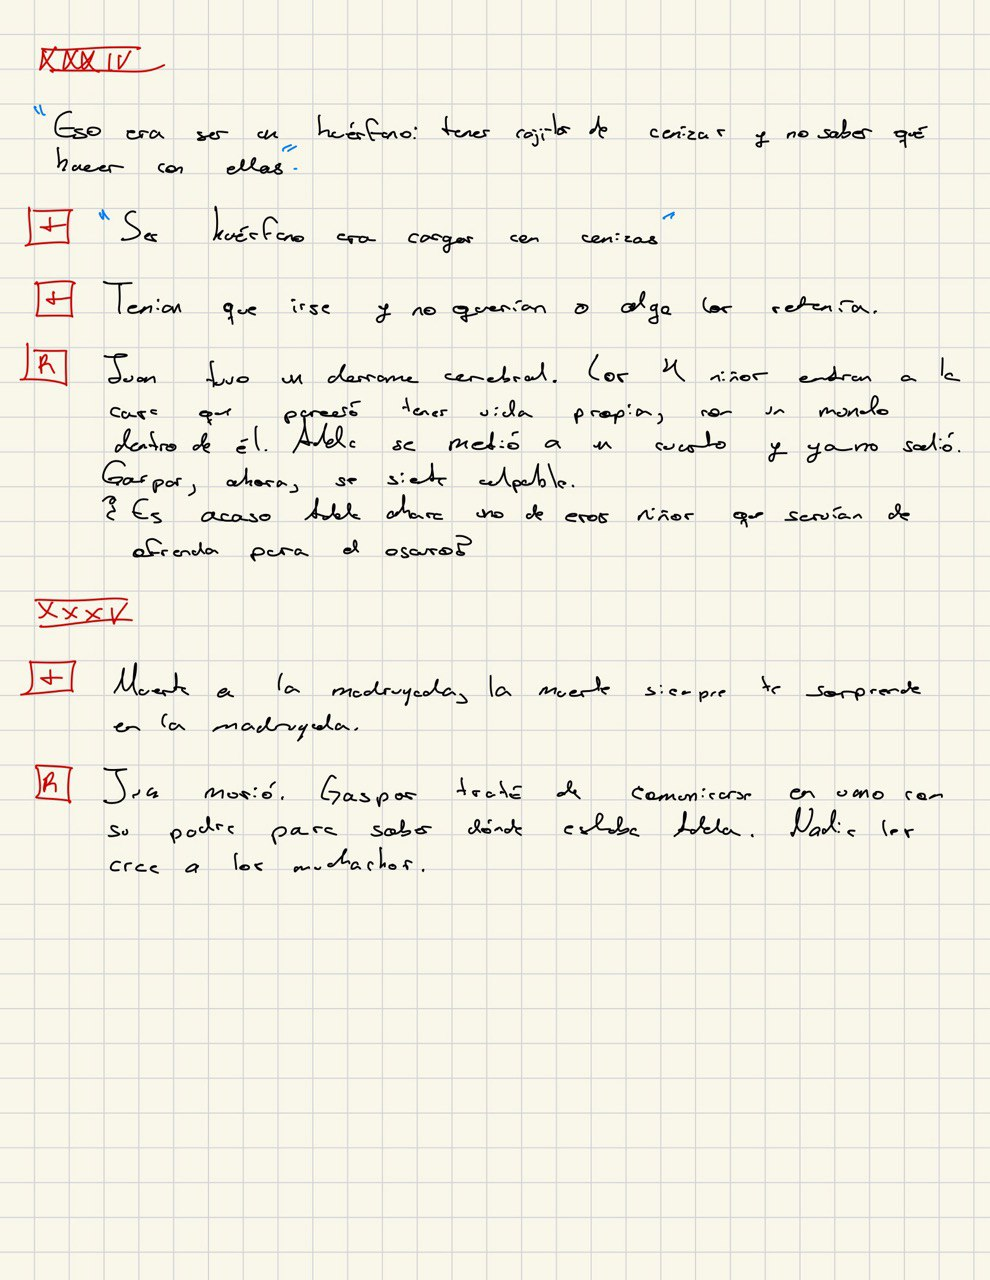 XXXIV
"Eso era ser un huérfano: tener cajitas de cenizas y no saber qué
hacer con ellas".
+ "Ser huérfano era cargar con cenizas"
+ Tenían que irse y no querían o algo los retenía.
R Juan tuvo un derrame cerebral. Los 4 niños entran a la
casa que pareció tener vida propia, con un mundo
dentro de él. Adela se metió a un cuarto y ya no salió.
Gaspar, ahora, se siente culpable.
¿Es acaso Adela ahora uno de esos niños que servían de
ofrenda para el oscuro?
XXXV
+ Muerte en la madrugada, la muerte siempre te sorprende
en la madrugada.
R Juan murió. Gaspar trató de comunicarse en vano con
su padre para saber dónde estaba Adela. Nadie les
cree a los muchachos.